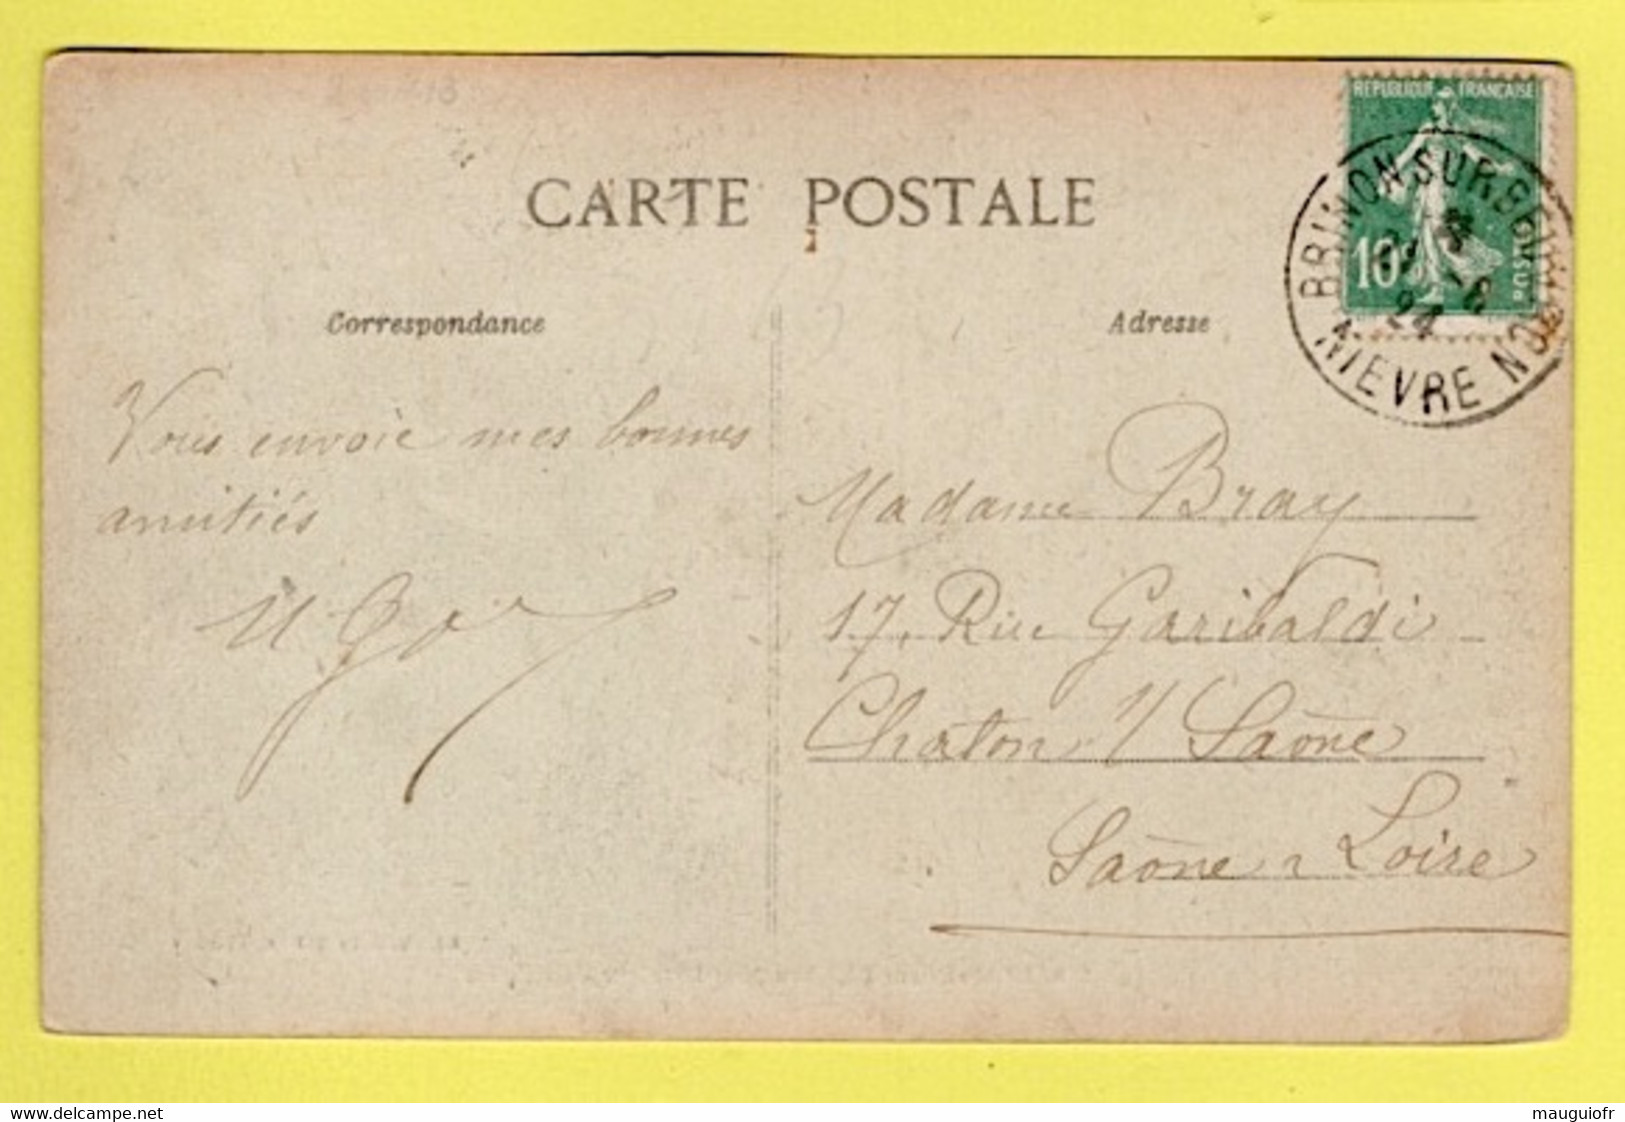 CARTE POSTALE
Correspondance
Adresse
REPUBLIQUE FRANÇAISE
10
POSTES
BRINON SUR BEUVRON
NIEVRE
24
Vous envoie mes bonnes
amitiés
Madame Bray
17, Rue Garibaldi
Chalon s/ Saône
Saône & Loire
delcampe.net
mauguiofr